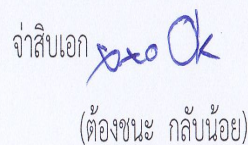 จ่าสิบเอก
(ต้องชนะ กลับน้อย)